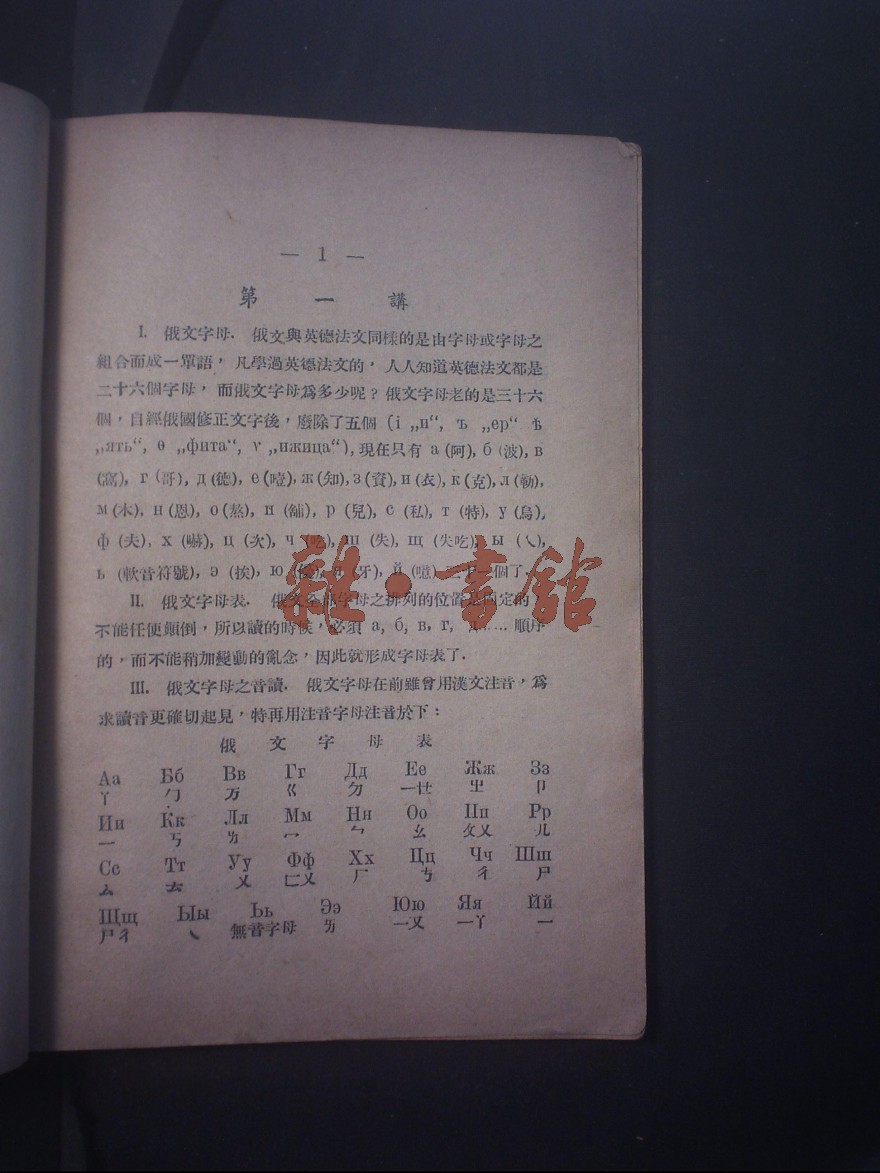 — 1 —
第 一 講
I. 俄文字母. 俄文與英德法文同樣的是由字母或字母之
組合而成一單語, 凡學過英德法文的, 人人知道英德法文都是
二十六個字母, 而俄文字母爲多少呢? 俄文字母老的是三十六
個, 自經俄國修正文字後, 廢除了五個 (і „и“, ъ „ер“ ѣ
„ять“, ѳ „фита“, ѵ „ижица“), 現在只有 а (阿), б (波), в
(窩), г (哥), д (德), е (噎), ж (知), з (資), и (衣), к (克), л (勒),
м (木), н (恩), о (熬), п (舖), р (兒), с (私), т (特), у (烏),
ф (夫), х (嚇), ц (次), ч (吃), ш (失), щ (失吃), ы (㇏),
ь (軟音符號), э (挨), ю (優), я (牙), й (噫) 三十一個了.
II. 俄文字母表. 俄文全部字母之排列的位置是固定的,
不能任便顛倒, 所以讀的時候, 必須 а, б, в, г, д..... 順序
的, 而不能稍加變動的亂念, 因此就形成字母表了.
III. 俄文字母之音讀. 俄文字母在前雖曾用漢文注音, 爲
求讀音更確切起見, 特再用注音字母注音於下:
俄 文 字 母 表
Аа Бб Вв Гг Дд Ее Жж Зз
ㄚ ㄅ ㄪ ㄍ ㄉ ㄧㄝ ㄓ ㄗ
Ии Кк Лл Мм Нн Оо Пп Рр
ㄧ ㄎ ㄌ ㄇ ㄣ ㄠ ㄆㄨ ㄦ
Сс Тт Уу Фф Хх Цц Чч Шш
ㄙ ㄊ ㄨ ㄈㄨ ㄏ ㄘ ㄔ ㄕ
Щщ Ыы Ьь Ээ Юю Яя Йй
ㄕㄔ ㇏ 無音字母 ㄞ ㄧㄡ ㄧㄚ ㄧ
雜·書館